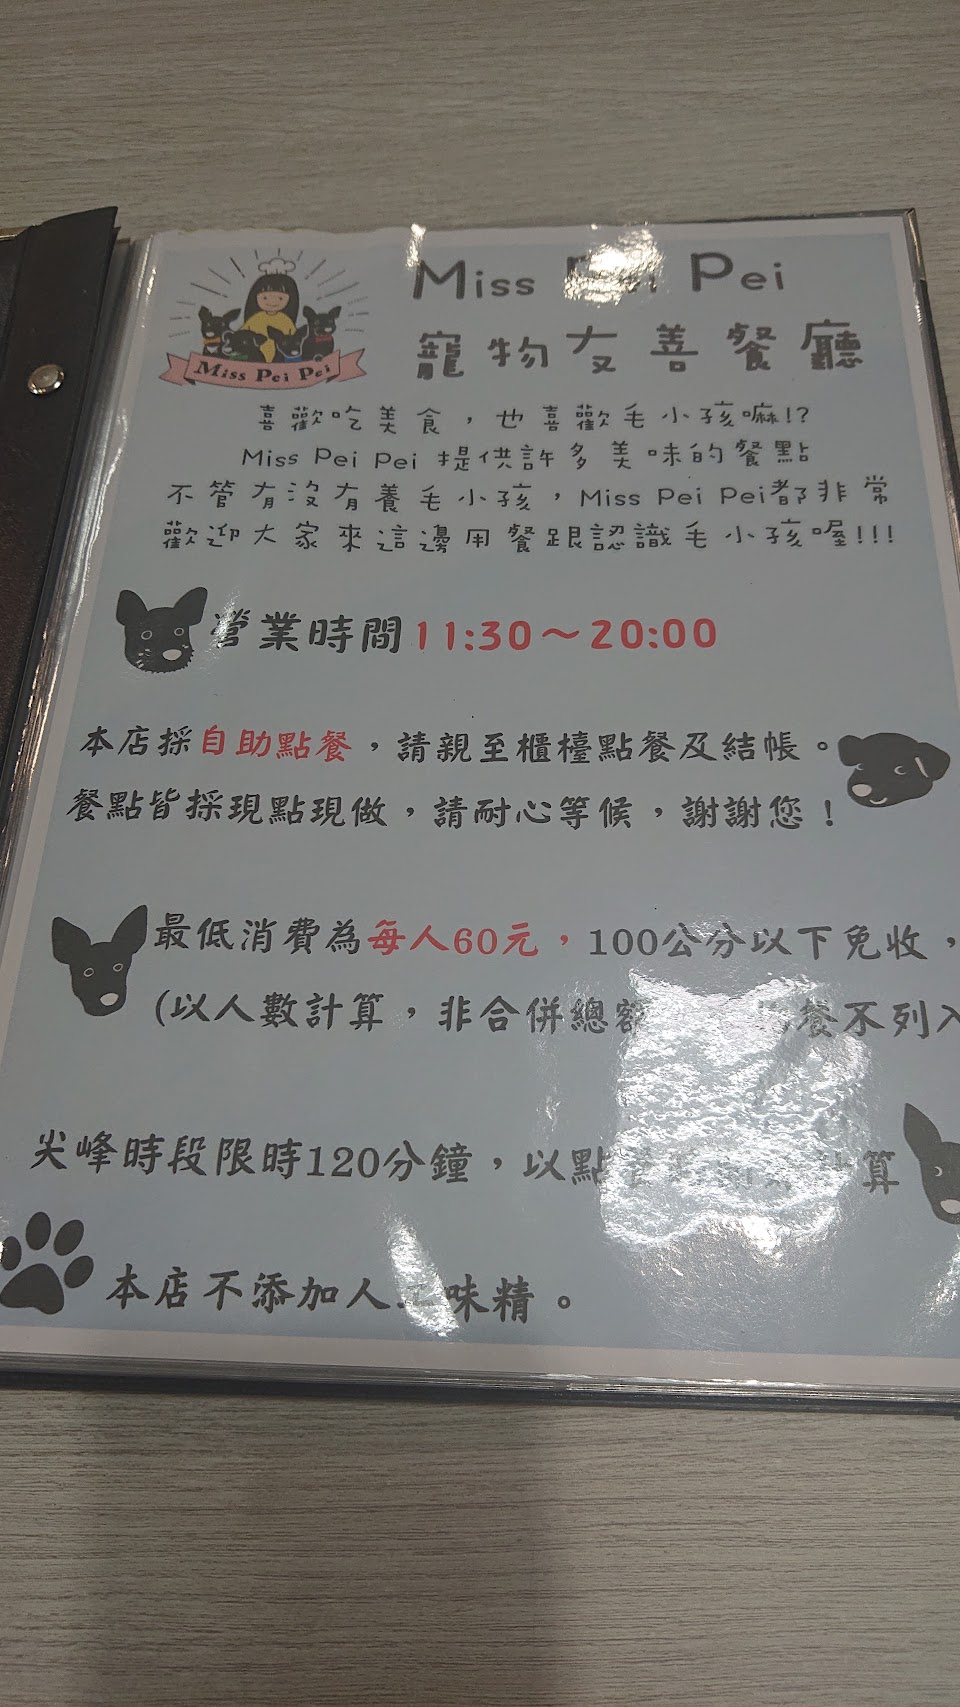 Miss Pei Pei
Miss Pei Pei
寵物友善餐廳
喜歡吃美食，也喜歡毛小孩嘛!?
Miss Pei Pei 提供許多美味的餐點
不管有沒有養毛小孩，Miss Pei Pei都非常
歡迎大家來這邊用餐跟認識毛小孩喔!!!
營業時間11:30～20:00
本店採自助點餐，請親至櫃檯點餐及結帳。
餐點皆採現點現做，請耐心等候，謝謝您！
最低消費為每人60元，100公分以下免收，
(以人數計算，非合併總額 餐不列入
尖峰時段限時120分鐘，以點 算
本店不添加人工味精。